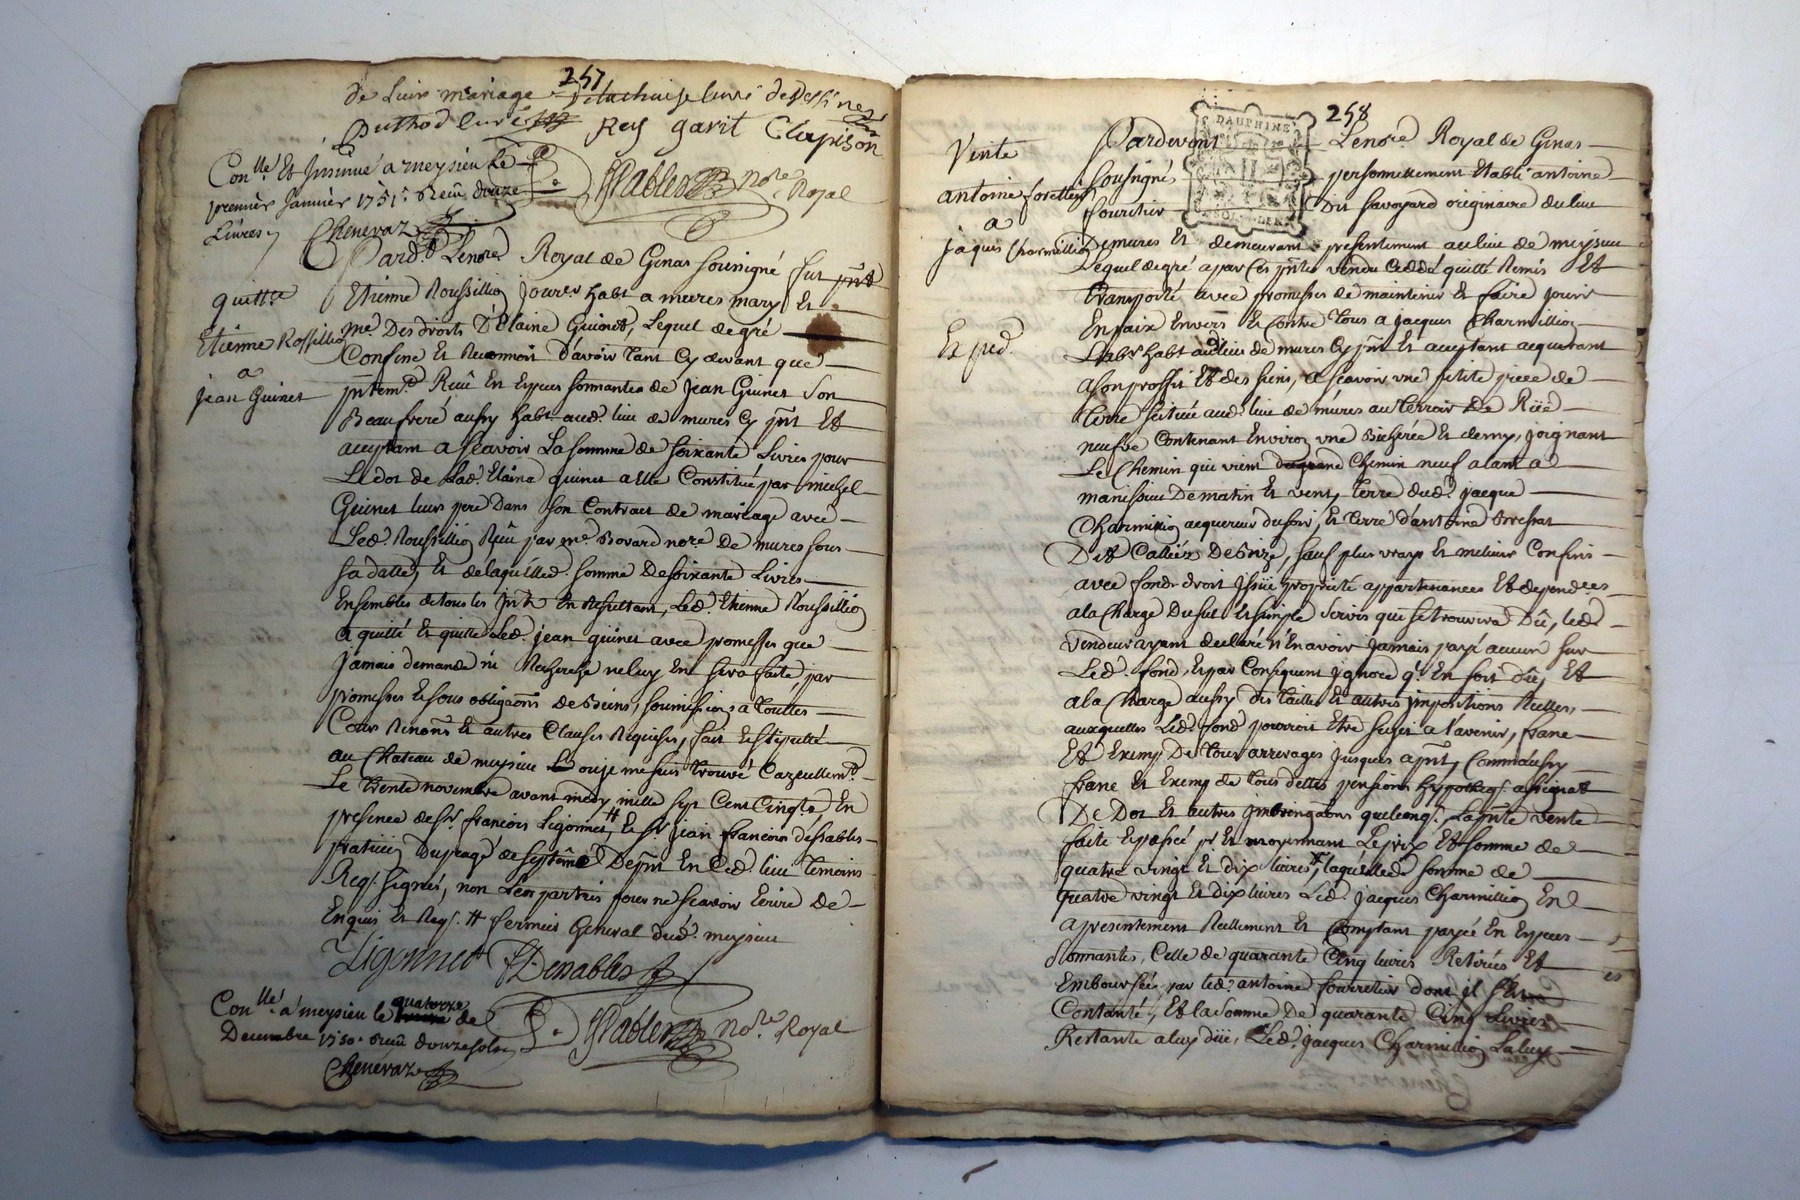 257
de leur mariage
Duthod curé Rey garit Clapison
Con.lle Et Insinué a meysieu le
premier Janvier 1751. Receu douze
Livres
Chenevaz
DesSables No.re Royal
Pard.t Le no.re Royal de Genas sousigné fut p.nt
quitt.ce
Etienne Roussillioz jour.r hab.t a mures mary Et
Etienne Rossillioz
a
jean Guinet
me Des droits D'Elaine Guinet, Lequel de gré
Confesse Et Reconnoit d'avoir tant Cy devant que
p.ntem.t Receu En Especes sonnantes de Jean Guinet Son
Beaufrere aussy hab.t aud. lieu de mures Cy p.nt Et
acceptant a scavoir La somme de soixante Livres pour
Le dot de Lad. Elaine guinet a elle Constitué par michel
Guinet leur pere Dans son Contract de mariage avec
Led. Roussillioz Reçu par me Bovard no.re De mures sous
sa datte, Et de laquelle d. somme De soixante Livres
Ensembles de tous les En Resultant, Led. Etienne Roussillioz
a quitté Et quitte Led. jean guinet avec promesses que
jamais demande ni Recherche ne luy En sera faite par
promesses Et sous obliga.ons de Biens, soumissions a toutes
Cours Renon.s Et autres Clauses Requises, fait Et stipullé
au Chateau de meysieu ou je me suis trouvé Cazuellem.t
Le trente novembre avant midy mille sept Cent Cinq.te, En
presence de s.r francois Ligonnet # Et s.r jean francois dessables
praticien Du De p.nt En Ced. lieu temoins
Req.s signés, non Les parties pour ne scavoir Ecrire de
Enquis Et Req.s # fermier General dud. meysieu
Ligonnet DesSables
Con.lle a meysieu le quatorze de
Decembre 1750. Receu douze sols
Chenevaz
DesSables No.re Royal
258
DAUPHINE
Vente
antoine foretier
a
jaques Charmillioz
Exped.
Pardevant Le no.re Royal de Genas
sousigné personnellement Etabli antoine
fouretier Dit savoyard originaire du lieu
De mures Et demeurant presentement au lieu de meysieu
Lequel de gré a par Ces p.ntes vendu Ceddé quitté Remis Et
transporté avec promesses de maintenir Et faire jouir
En paix Envers Et Contre tous a jacques Charmillioz
Lab.r hab.t au d. lieu de mures Cy p.nt Et acceptant acquerant
a son proffit Et des siens, a scavoir une petite piece de
terre scituée aud. lieu de mures au terroir De Riïe
neufve Contenant Environ une Bicherée Et demy, joignant
Le Chemin qui vient du grand Chemin neuf alant a
manissieu De matin Et vent, terre dud. jacque
Charmillioz acquereur du soir, Et terre d'antoine
Dit Callier De Bize, sauf plus vrays Et meilleurs Confins
avec fond droit Issüe proprieté appartenances Et dépend.ces
a la Charge Du seul Et simple servis qui se trouvera Dû, led.
vendeur ayant declaré n'En avoir jamais payé aucun sur
Led. fond, Et par Consequent Ignore q.il En soit dû, Et
a la Charge aussy des tailles Et autres impositions Reelles,
auxquelles Led. fond pourroit Etre sujet a l'avenir, franc
Et Exemp De tous arrerages jusques a p.nt, Comm'aussy
franc Et Exemp de tous dettes pensions hypoteq.s assignat
De Dot Et autres quelconq.s La p.nte vente
faite Et passée p.r Et moyennant Le prix Et somme de
quatre vingt Et dix livres, laquelle d. somme de
quatre vingt Et dix livres Led. jacques Charmillioz En
a presentement Reellement Et Comptant payée En Especes
sonnantes, Celle de quarante Cinq livres Retirées Et
Emboursée par led. antoine fouretier dont il s'est
Contanté, Et la somme De quarante Cinq Livres
Restante a luy düe, Led. jacques Charmillioz La luy